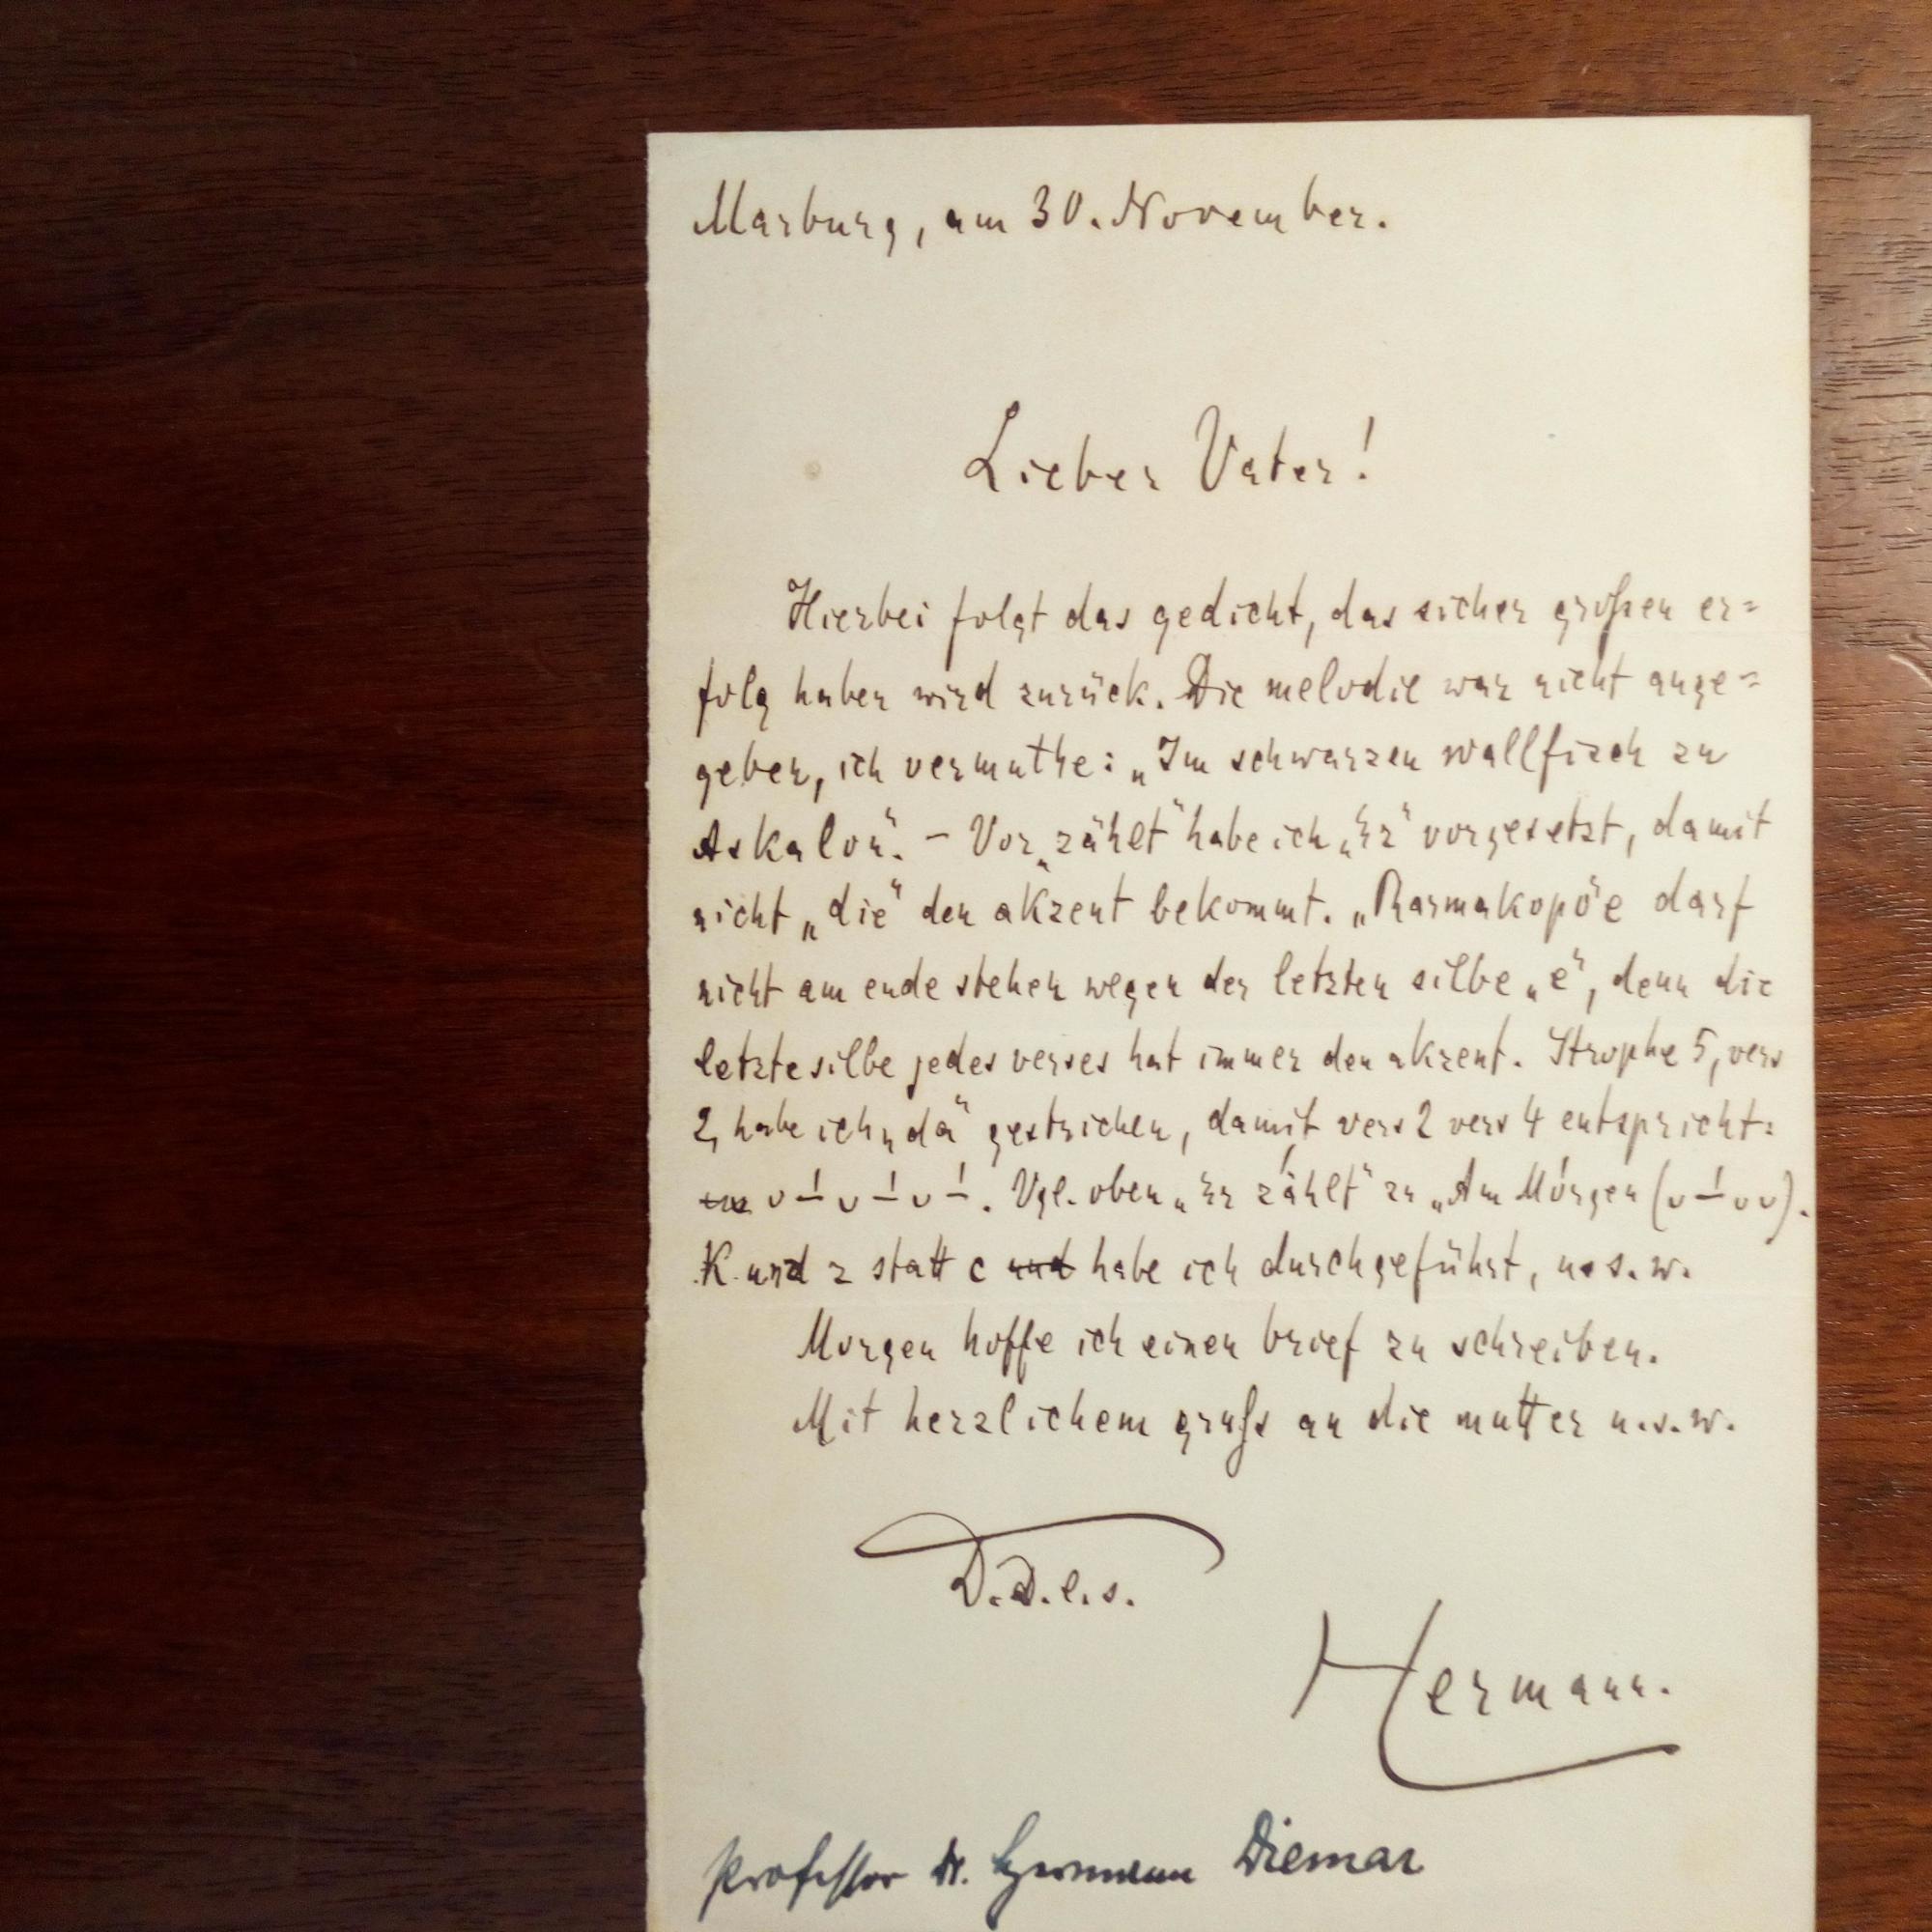 Marburg, am 30. November.
Lieber Vater!
Hierbei folgt das gedicht, das sicher großen er=
folg haben wird zurück. Die melodie war nicht ange=
geben, ich vermuthe: „Im schwarzen wallfisch zu
Askalon“. – Vor „zählt“ habe ich „Er“ vorgesetzt, damit
nicht „die“ den akzent bekommt. „Pharmakopöe darf
nicht am ende stehen wegen der letzten silbe „e“, denn die
letzte silbe jedes verses hat immer den akzent. Strophe 5, vers
2, habe ich „da“ gestrichen, damit vers 2 vers 4 entspricht:
∪ –́ ∪ –́ ∪ –́. Vgl. oben „Er zählt“ zu „Am Mórgen (∪ –́ ∪ ∪).
K und z statt c und habe ich durchgeführt, u. s. w.
Morgen hoffe ich einen brief zu schreiben.
Mit herzlichem gruß an die mutter u. s. w.
D. d. l. s.
Hermann.
Professor Dr. Hermann Diemar